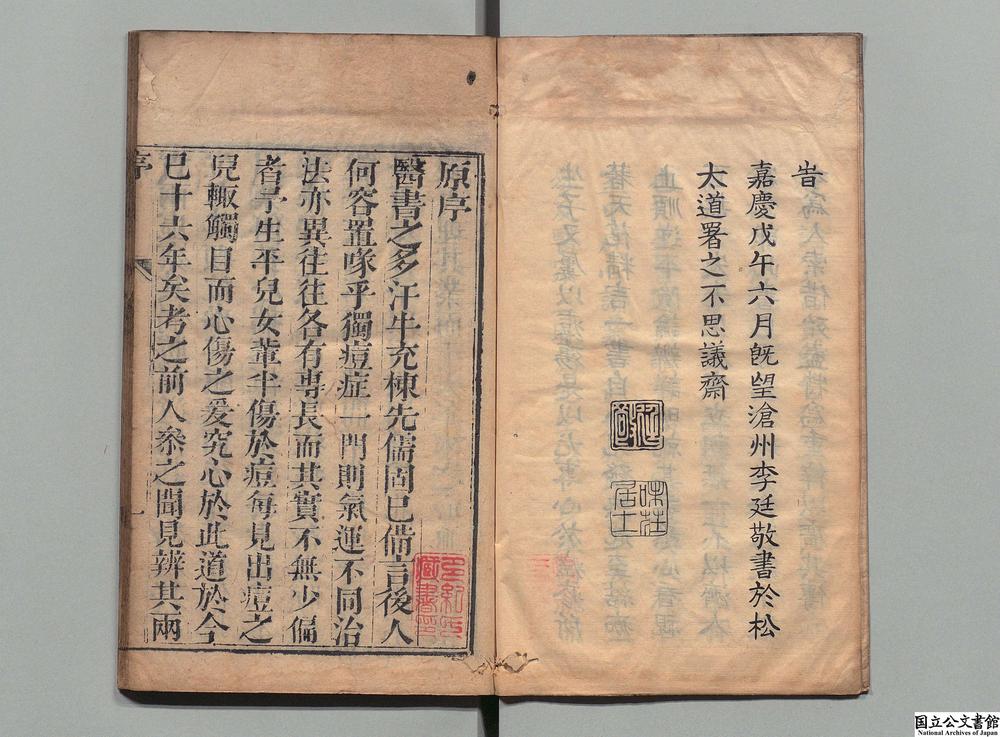 昔
嘉慶戊午六月旣望滄州李廷敬書於松
太道署之不思議齋
廷敬
味莊
居士
原序
醫書之多汗牛充棟先儒固已備言後人
何容置喙乎獨痘症一門則氣運不同治
法亦異往往各有專長而其實不無少偏
者予生平兒女輩半傷於痘每見出痘之
兒輙觸目而心傷之爰究心於此道於今
已十六年矣考之前人叅之聞見辨其兩
序
一
国立公文書館
National Archives of Japan